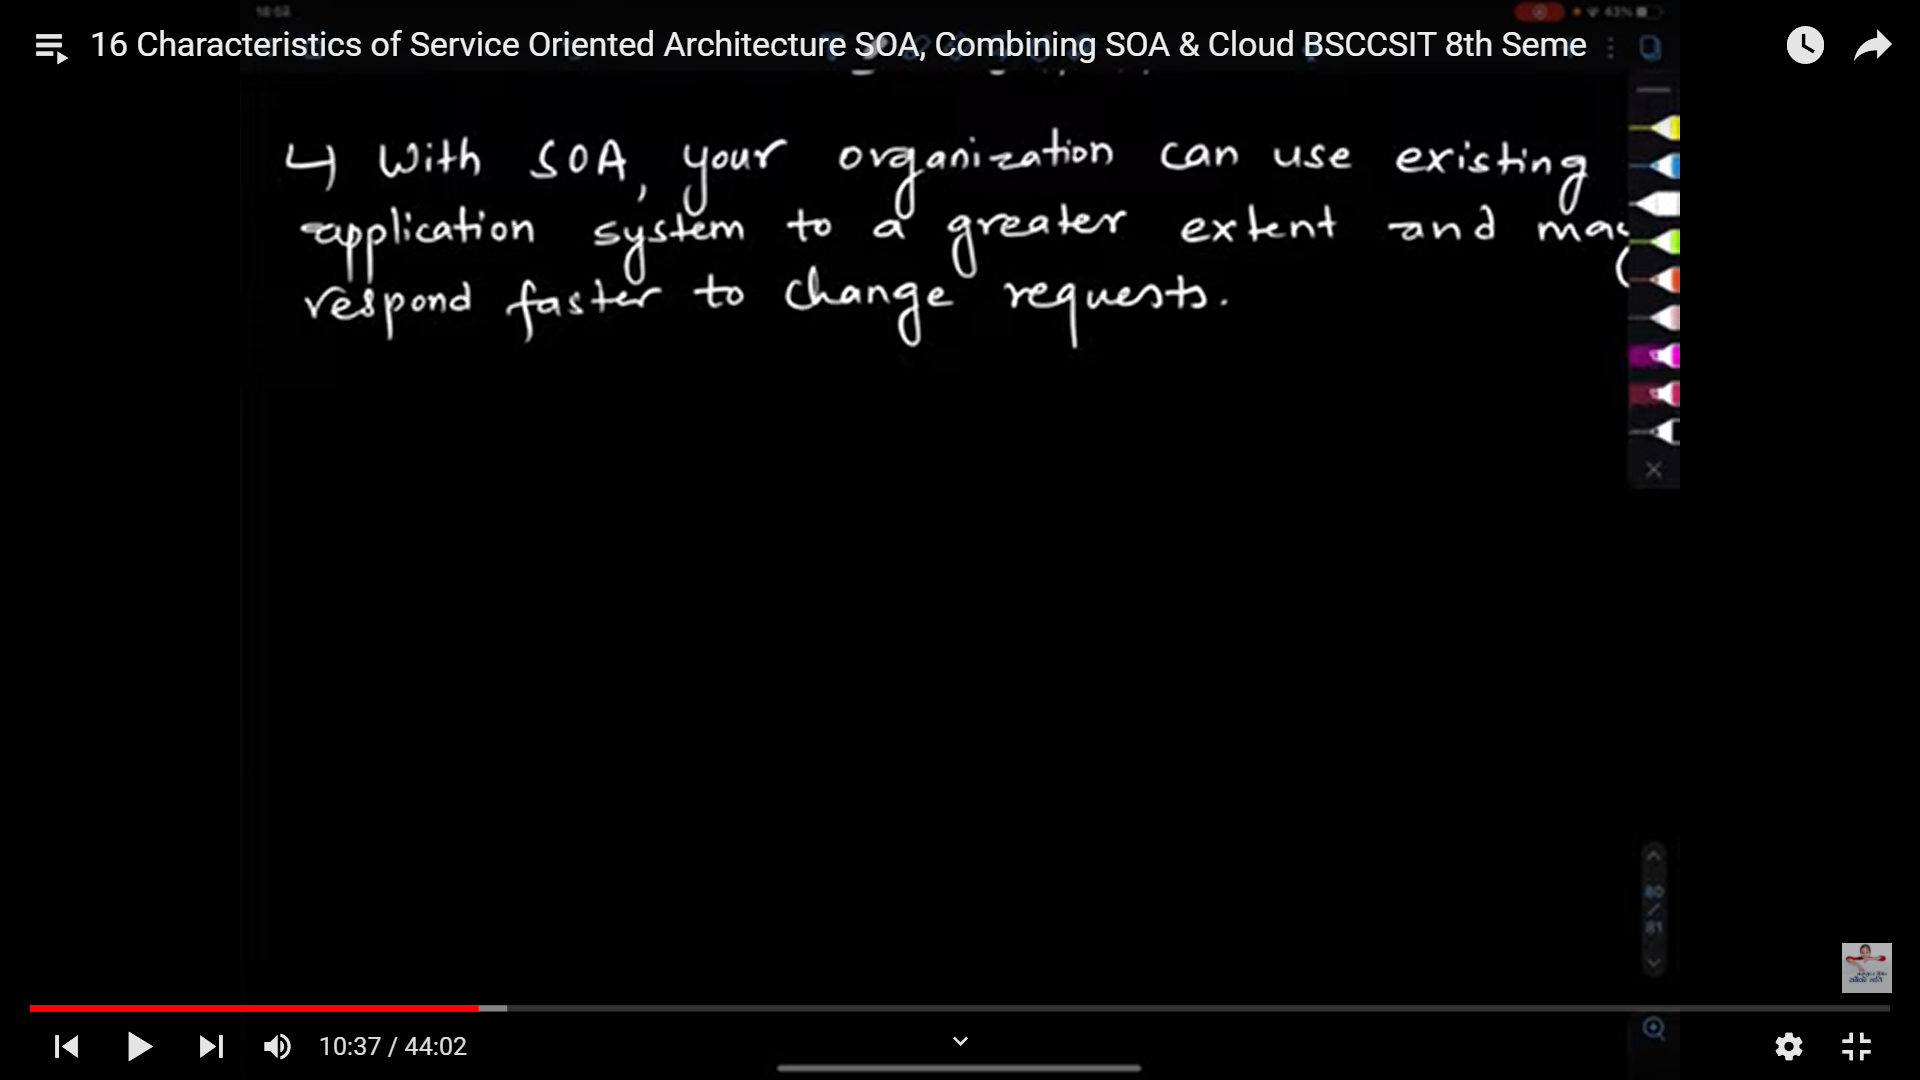 18:03
43%
16 Characteristics of Service Oriented Architecture SOA, Combining SOA & Cloud BSCCSIT 8th Seme
↳ With SOA, your organization can use existing
application system to a greater extent and may
respond faster to change requests.
80
/
81
10:37 / 44:02